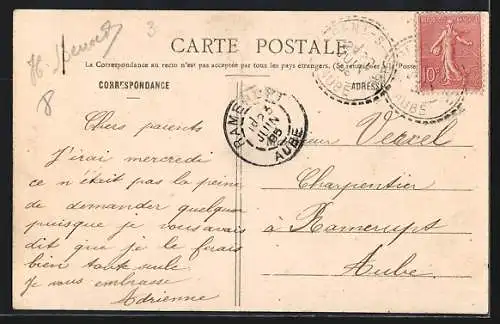 3
H. Benoist
8
CARTE POSTALE
La Correspondance au recto n'est pas acceptée par tous les pays étrangers. (Se renseigner à la Poste)
CORRESPONDANCE
ADRESSE
RAMERUPT
25
JUIN
05
AUBE
AUBE
AUBE
10c
Chers parents
J'irai mercredi
ce n'était pas la peine
de demander quelqu'un
puisque je vous avais
dit que je le ferais
bien toute seule
Je vous embrasse
Adrienne
Monsieur Verrel
Charpentier
à Ramerupt
Aube